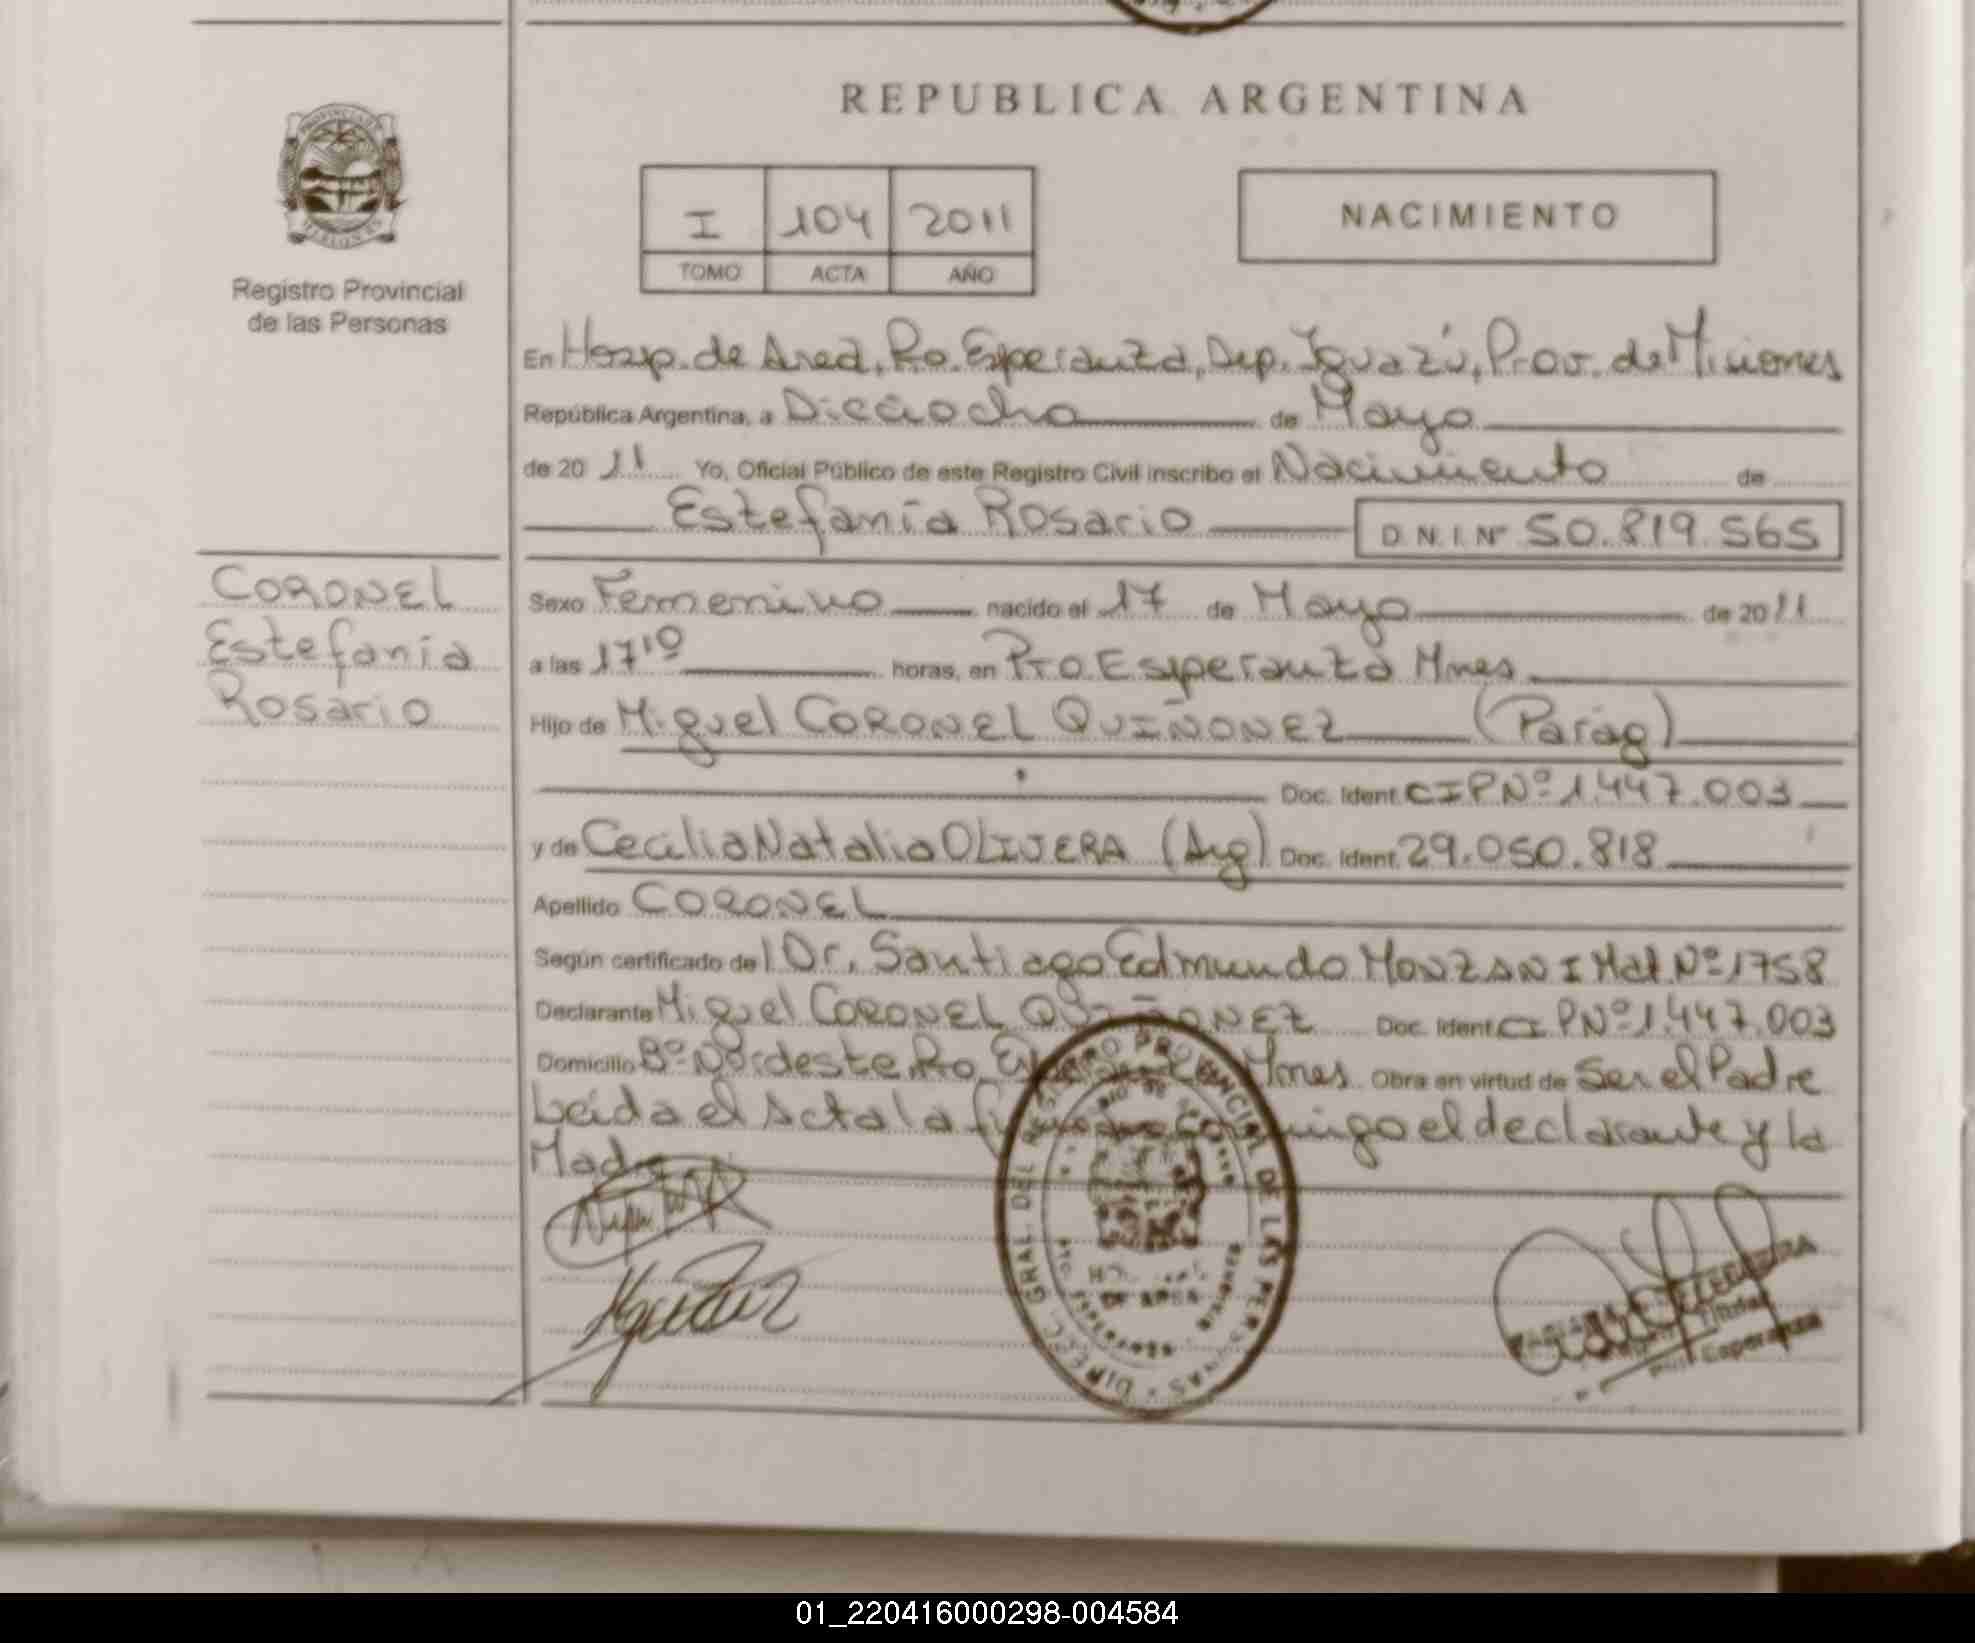 REPUBLICA ARGENTINA
I 104 2011
TOMO ACTA AÑO
NACIMIENTO
Registro Provincial
de las Personas
En Hosp. de Area, Pto. Esperanza, Dep. Iguazú, Prov. de Misiones
República Argentina, a Dieciocho de Mayo
de 20 11 Yo, Oficial Público de este Registro Civil inscribo el Nacimiento de
Estefanía Rosario D.N.I. Nº 50.819.565
CORONEL
Estefanía
Rosario
Sexo Femenino nacido el 17 de Mayo de 20 11
a las 17¹⁰ horas, en Pto. Esperanza Mnes
Hijo de Miguel CORONEL QUIÑONEZ (Parag)
Doc. Ident. CIPNº 1.447.003
y de Cecilia Natalia OLIVERA (Arg) Doc. Ident. 29.050.818
Apellido CORONEL
Según certificado del Dr. Santiago Edmundo MONZANI Mat. Nº 1758
Declarante Miguel CORONEL QUIÑONEZ Doc. Ident. CIPNº 1.447.003
Domicilio Bº Nordeste, Pto. Esperanza Mnes Obra en virtud de Ser el Padre
Leída el Acta la firman conmigo el declarante y la
Madre
DIREC. GRAL. DEL REGISTRO PROVINCIAL DE LAS PERSONAS
DE AREA
Titular
Esperanza
01_220416000298-004584